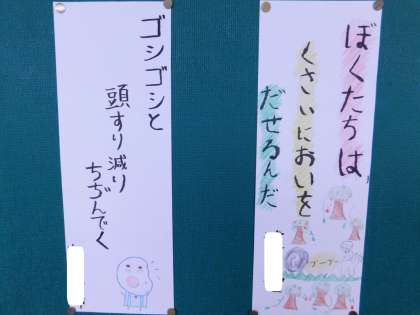 ぼくたちは
くさいにおいを
だせるんだ
プープー
ゴシゴシと
頭すり減り
ちぢんでく